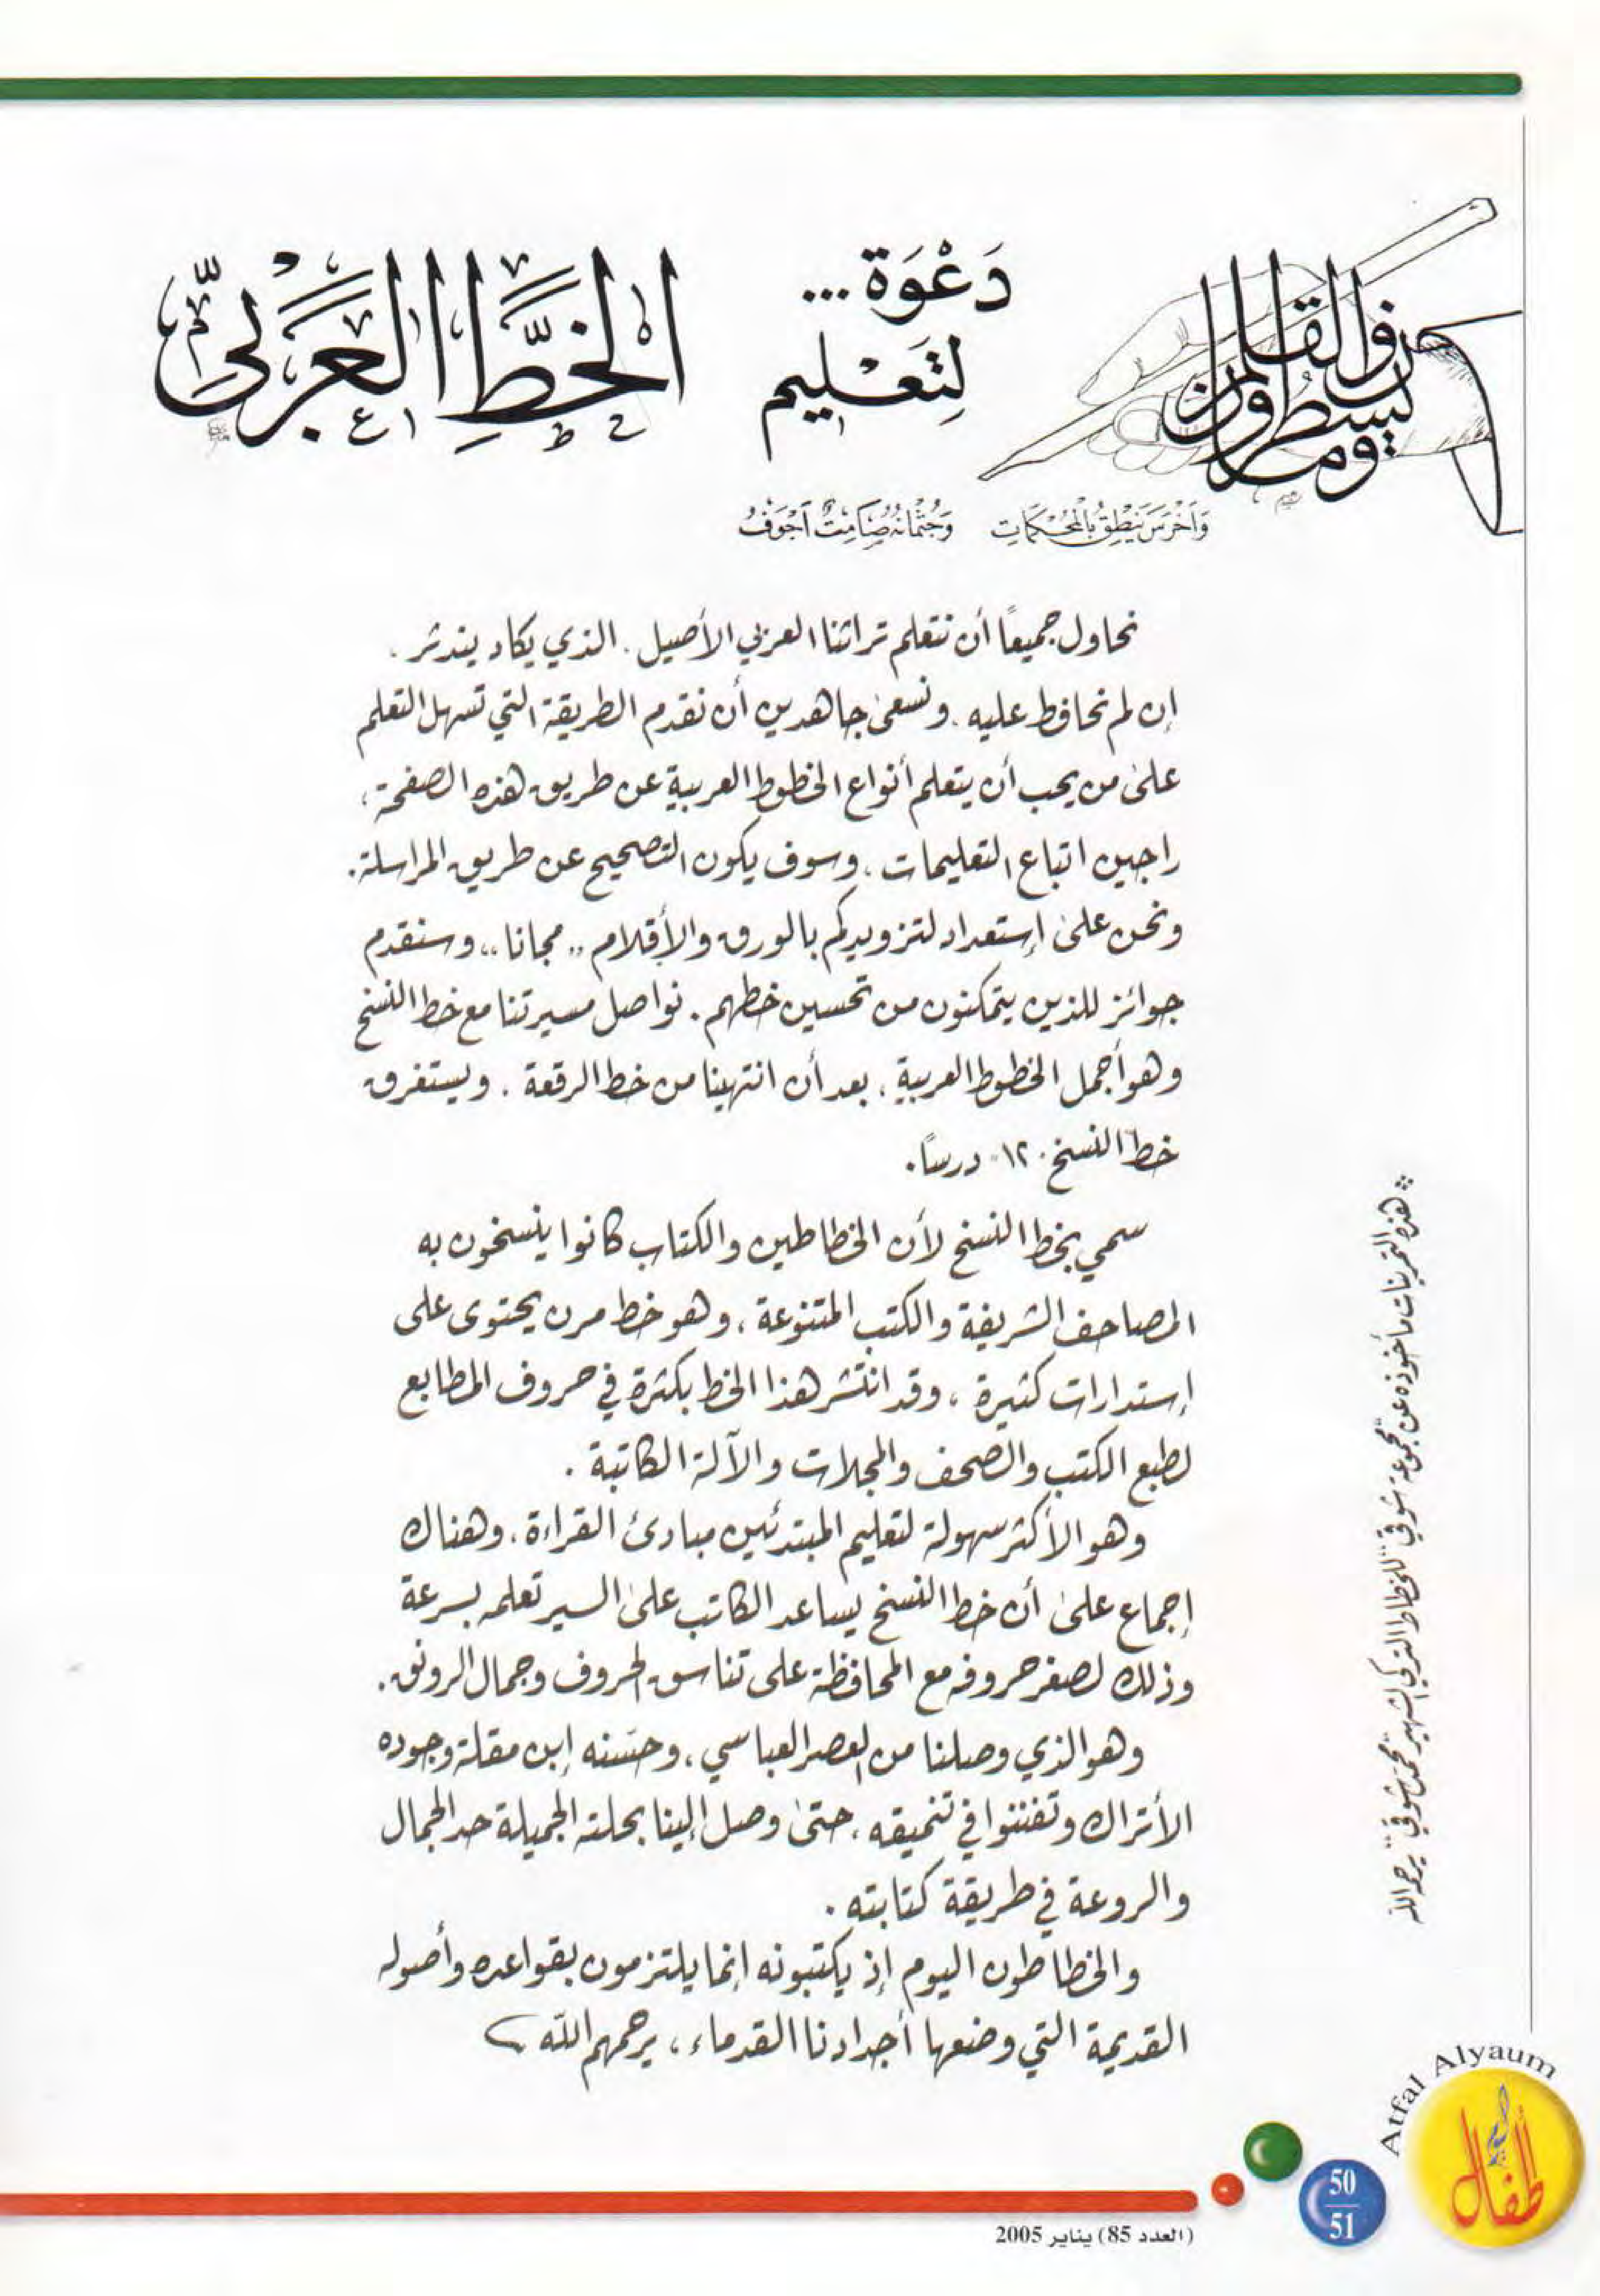 ن والقلم
وما يسطرون
دَعْوَة...
لِتَعْليم
الخَطِّ العَرَبيِّ
وَأَخْرَسَ يَنْطِقُ بِالمُحْكَمَاتِ وَجُثْمَانُهُ صَامِتٌ أَجْوَفُ
نحاول جميعاً أن نتعلم تراثنا العربي الأصيل. الذي يكاد يندثر.
إن لم نحافظ عليه. ونسعى جاهدين أن نقدم الطريقة التي تسهل التعلم
على من يحب أن يتعلم أنواع الخطوط العربية عن طريق هذه الصفحة،
راجين اتباع التعليمات، وسوف يكون التصحيح عن طريق المراسلة.
ونحن على إستعداد لتزويدكم بالورق والأقلام "مجانا" وسنقدم
جوائز للذين يتمكنون من تحسين خطهم. نواصل مسيرتنا مع خط النسخ
وهو أجمل الخطوط العربية، بعد أن انتهينا من خط الرقعة. ويستغرق
خط النسخ "١٢" درساً.
سمي بخط النسخ لأن الخطاطين والكتاب كانوا ينسخون به
المصاحف الشريفة والكتب المتنوعة، وهو خط مرن يحتوى على
إستدارات كثيرة، وقد انتشر هذا الخط بكثرة في حروف المطابع
لطبع الكتب والصحف والمجلات والآلة الكاتبة.
وهو الأكثر سهولة لتعليم المبتدئين مبادئ القراءة، وهناك
إجماع على أن خط النسخ يساعد الكاتب على السير تعلمه بسرعة
وذلك لصغر حروفه مع المحافظة على تناسق الحروف وجمال الرونق.
وهو الذي وصلنا من العصر العباسي، وحسَّنه إبن مقلة وجوده
الأتراك وتفننوا في تنميقه، حتى وصل إلينا بحلته الجميلة حد الجمال
والروعة في طريقة كتابته.
والخطاطون اليوم إذ يكتبونه إنما يلتزمون بقواعده وأصوله
القديمة التي وضعها أجدادنا القدماء، يرحمهم الله
* هذه التمرينات مأخوذه عن "مجموعة شوقي" للخطاط التركي الشهير "محمد شوقي" يرحمه الله
Atfal Alyaum
أطفال اليوم
50
51
(العدد 85) يناير 2005